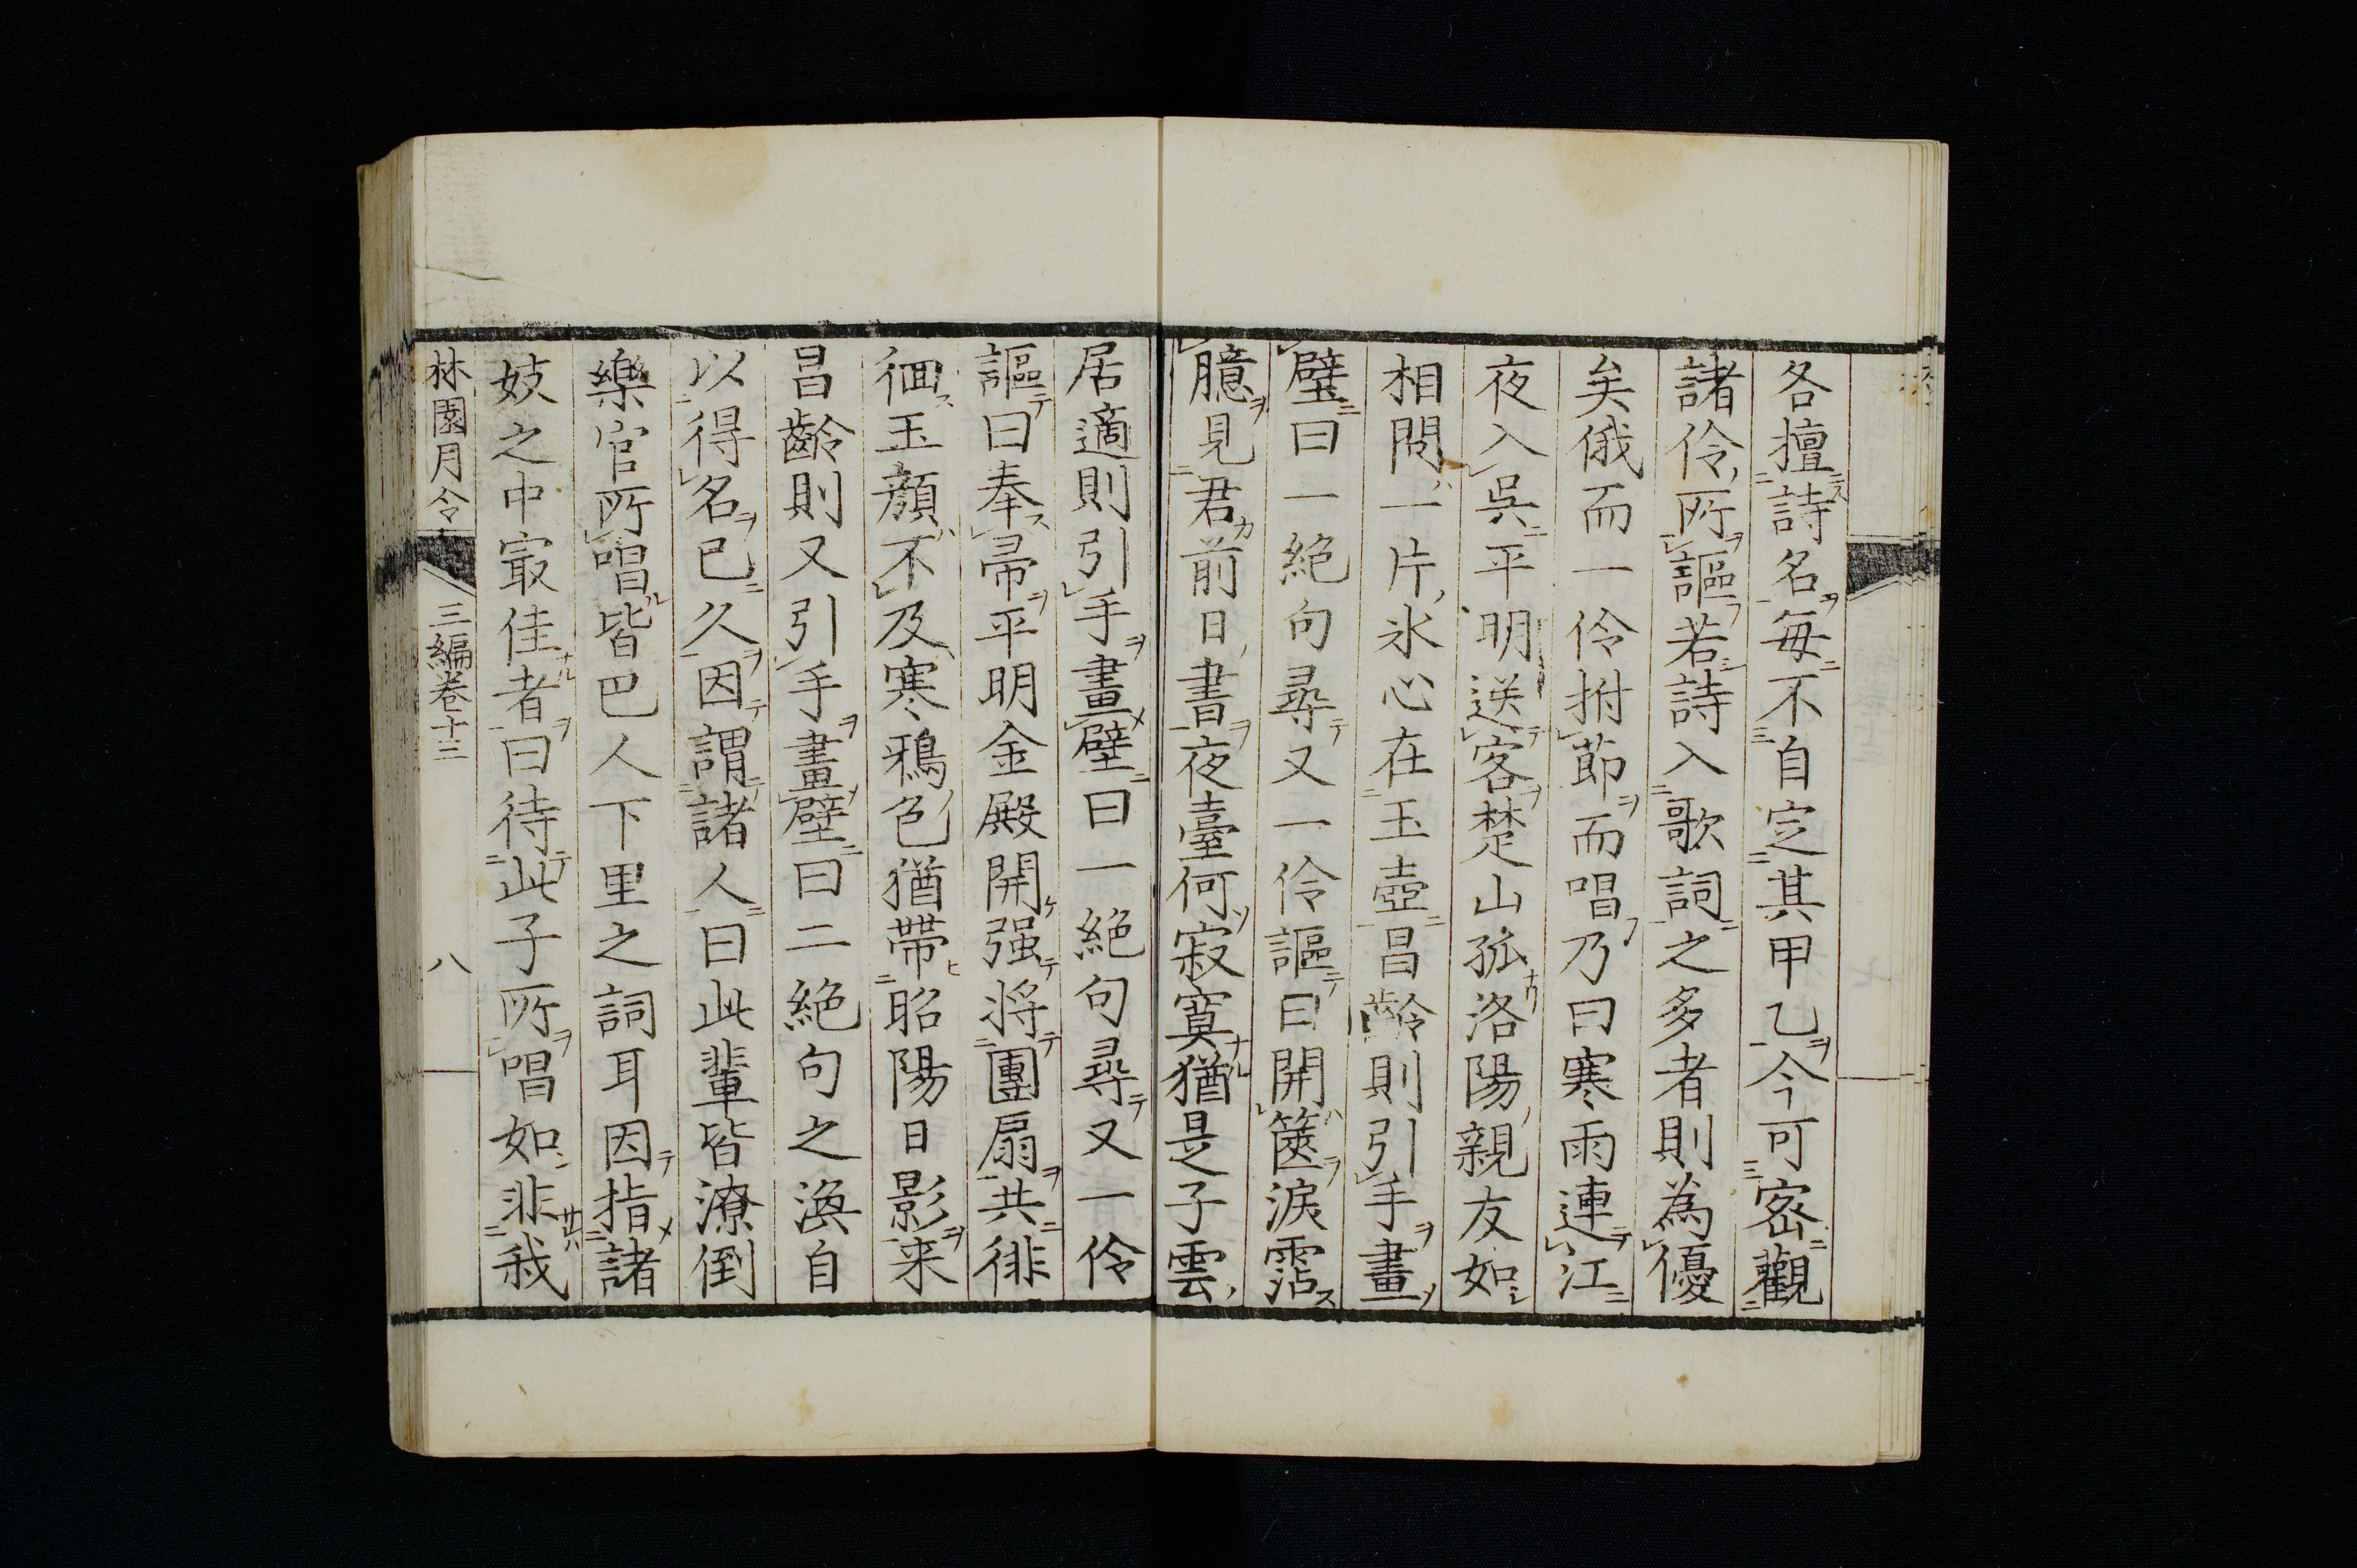 各擅詩名毎不自定其甲乙今可密觀
諸伶所謳若詩入歌詞之多者則為優
矣俄而一伶拊節而唱乃曰寒雨連江
夜入呉平明送客楚山孤洛陽親友如
相問一片氷心在玉壺昌齡則引手畫
壁曰一絶句尋又一伶謳曰開篋淚霑
臆見君前日書夜臺何寂寞猶是子雲
居適則引手畫壁曰一絶句尋又一伶
謳曰奉帚平明金殿開强将團扇共徘
徊玉顔不及寒鴉色猶帶昭陽日影来
昌齡則又引手畫壁曰二絶句之渙自
以得名已久因謂諸人曰此輩皆潦倒
樂官所唱皆巴人下里之詞耳因指諸
妓之中㝡佳者曰待此子所唱如非我
林園月令 三編巻十三 八